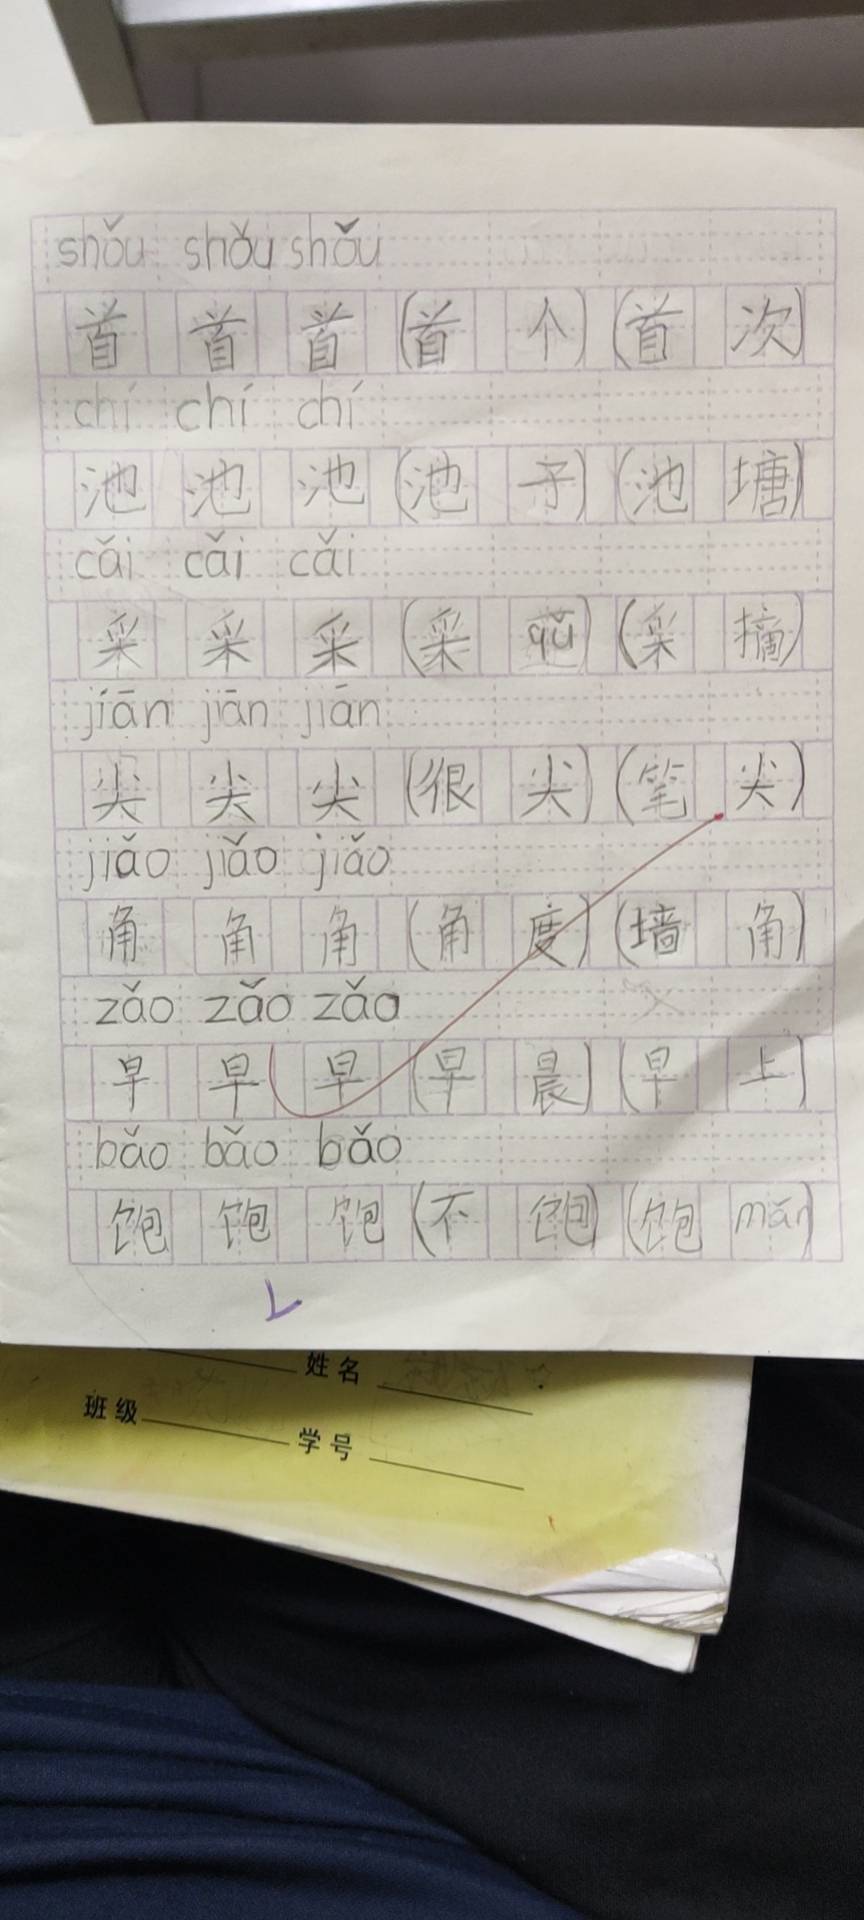 shǒu shǒu shǒu
首 首 首 (首 个) (首 次)
chí chí chí
池 池 池 (池 子) (池 塘)
cǎi cǎi cǎi
采 采 采 (采 qǔ) (采 摘)
jiān jiān jiān
尖 尖 尖 (很 尖) (笔 尖)
jiǎo jiǎo jiǎo
角 角 角 (角 度) (墙 角)
zǎo zǎo zǎo
早 早 早 (早 晨) (早 上)
bǎo bǎo bǎo
饱 饱 饱 (不 饱) (饱 mǎn)
姓名
班级
学号